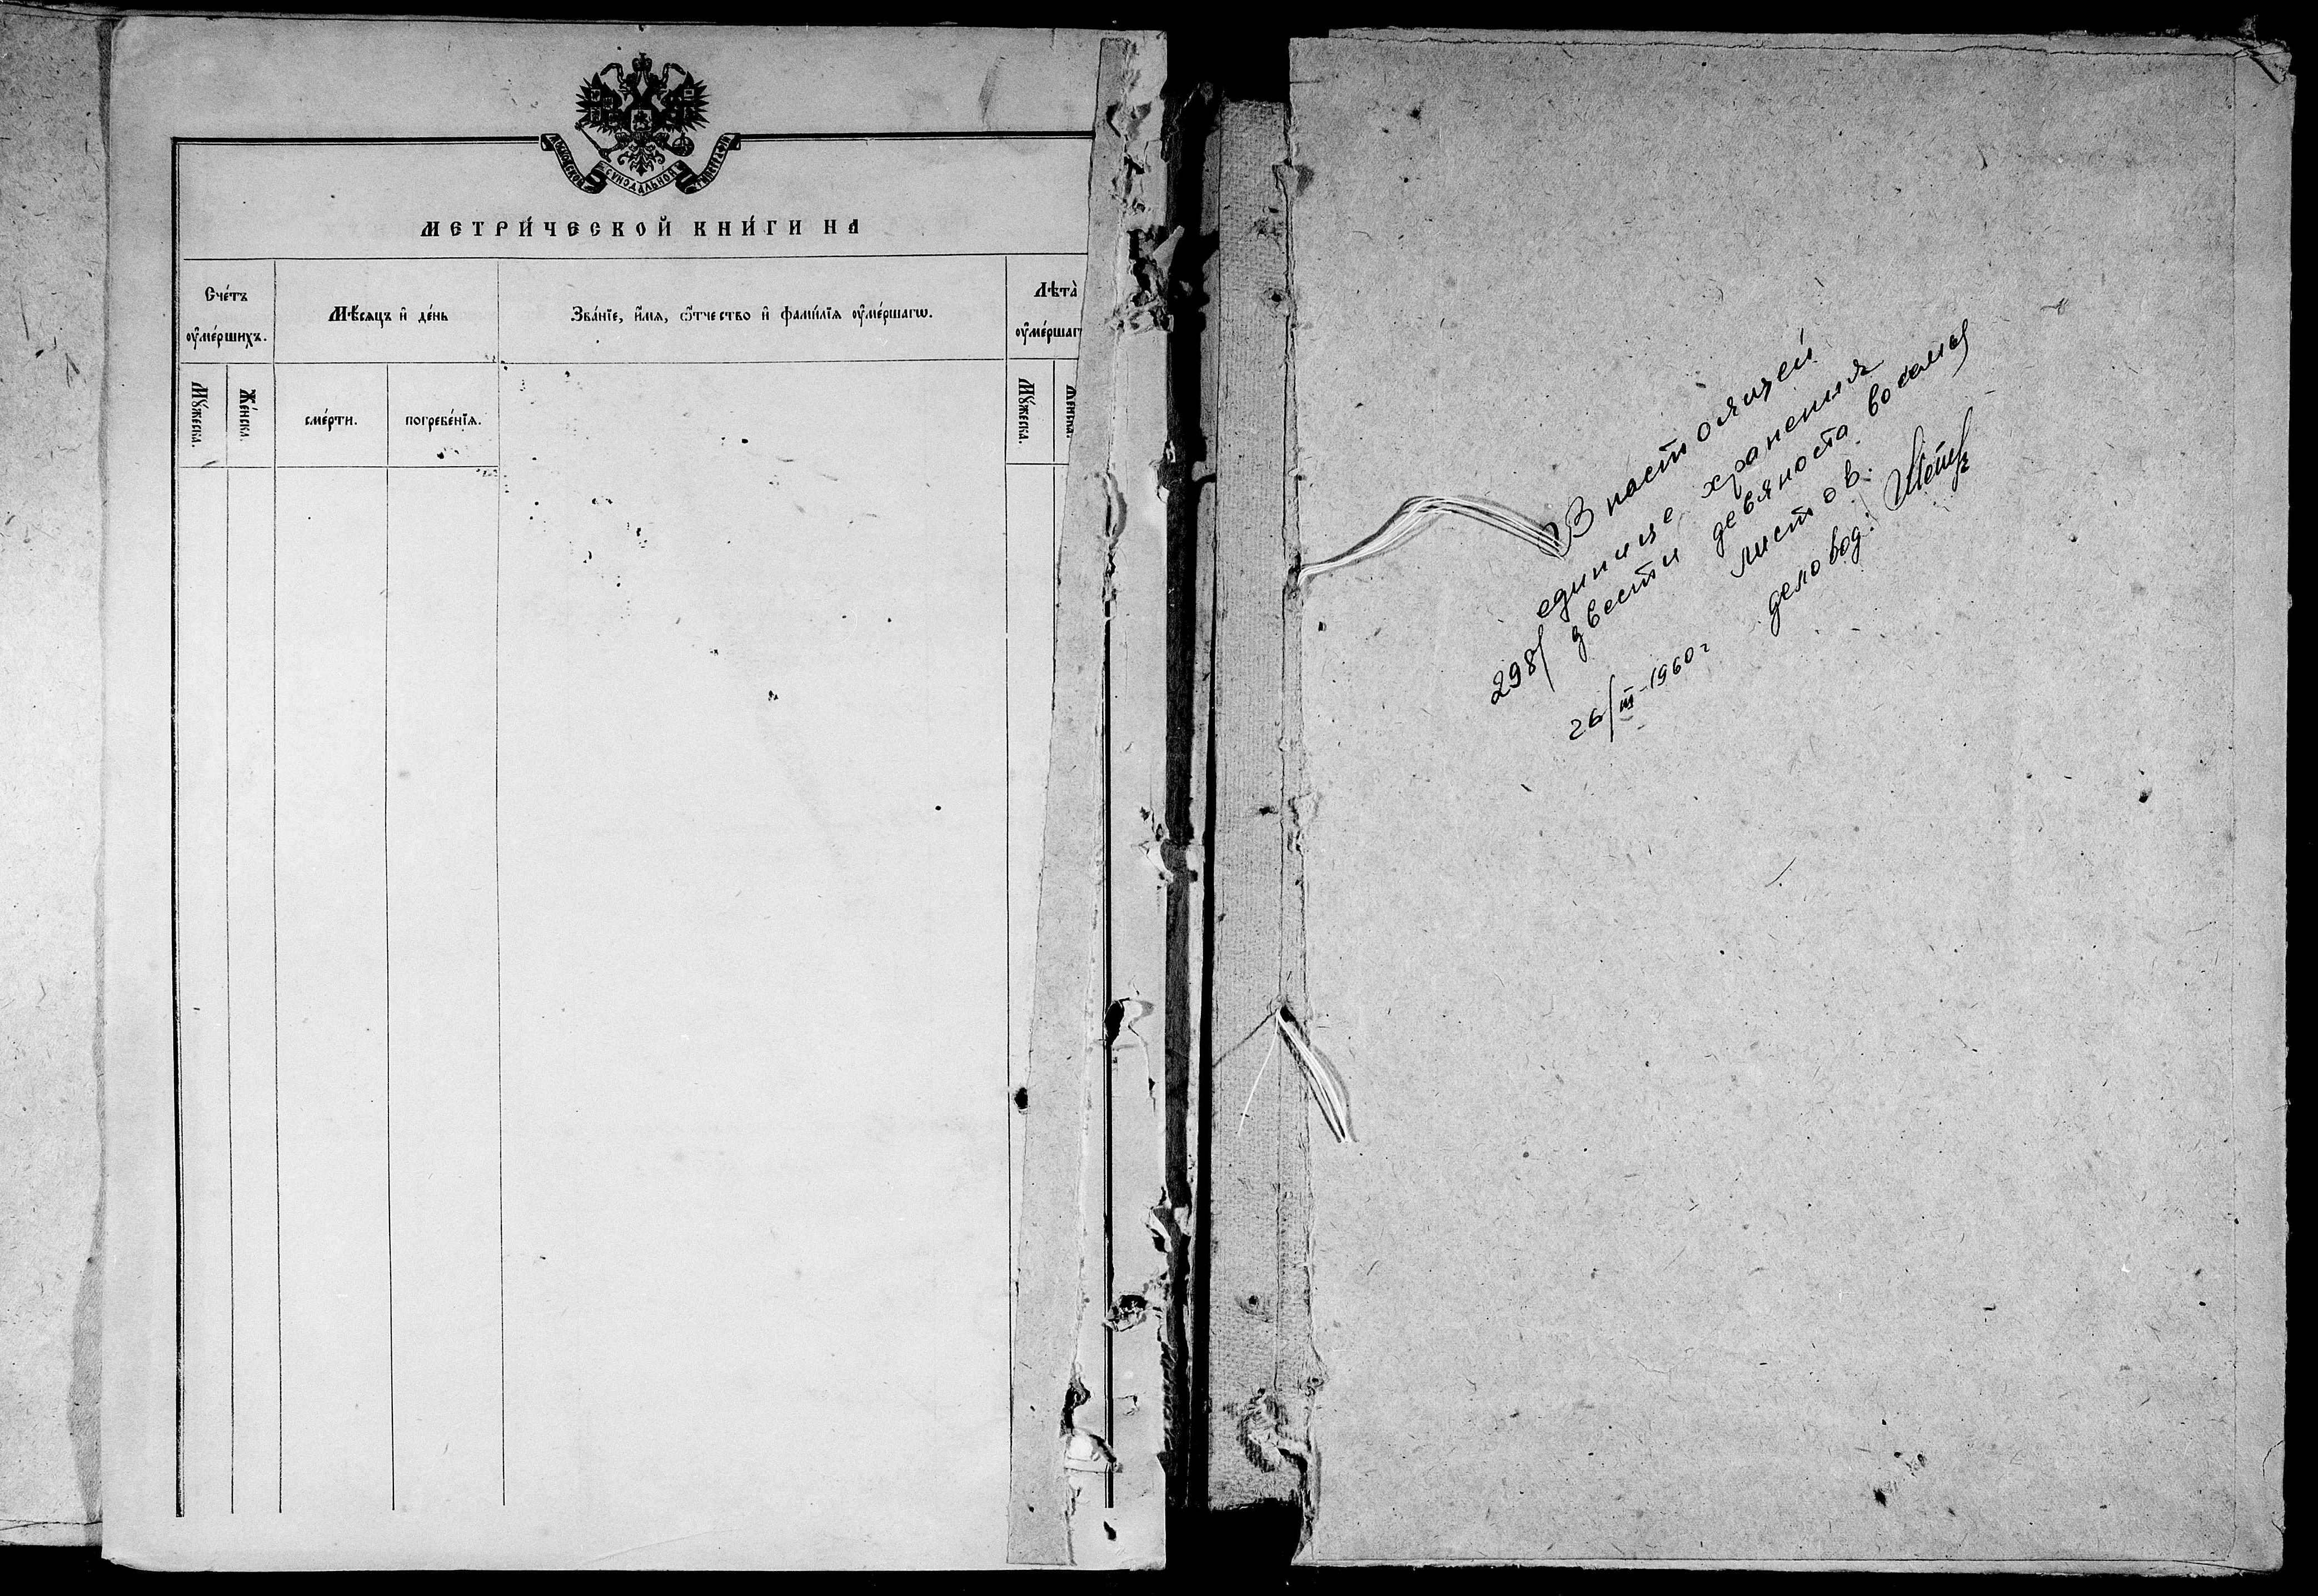 МОСКОВСКОЙ СѴНОДАЛЬНОЙ ТИПОГРАФІИ
МЕТРИ́ЧЕСКОЙ КНИ́ГИ НА
Сче́тъ ᲂу҆ме́ршихъ.
Мѣ́сяцъ и҆ де́нь
Зва́нїе, и҆́мѧ, ѻ҆́тчество и҆ фами́лїѧ ᲂу҆ме́ршагѡ.
Лѣта̀ ᲂу҆ме́ршаг
Мꙋ́жеска.
Же́нска.
сме́рти.
погребе́нїѧ.
Мꙋ́жеска.
Же́нска.
В настоящей
единице хранения
298/ двести девяноста восемь
листов.
26/III-1960г делопроизвод.